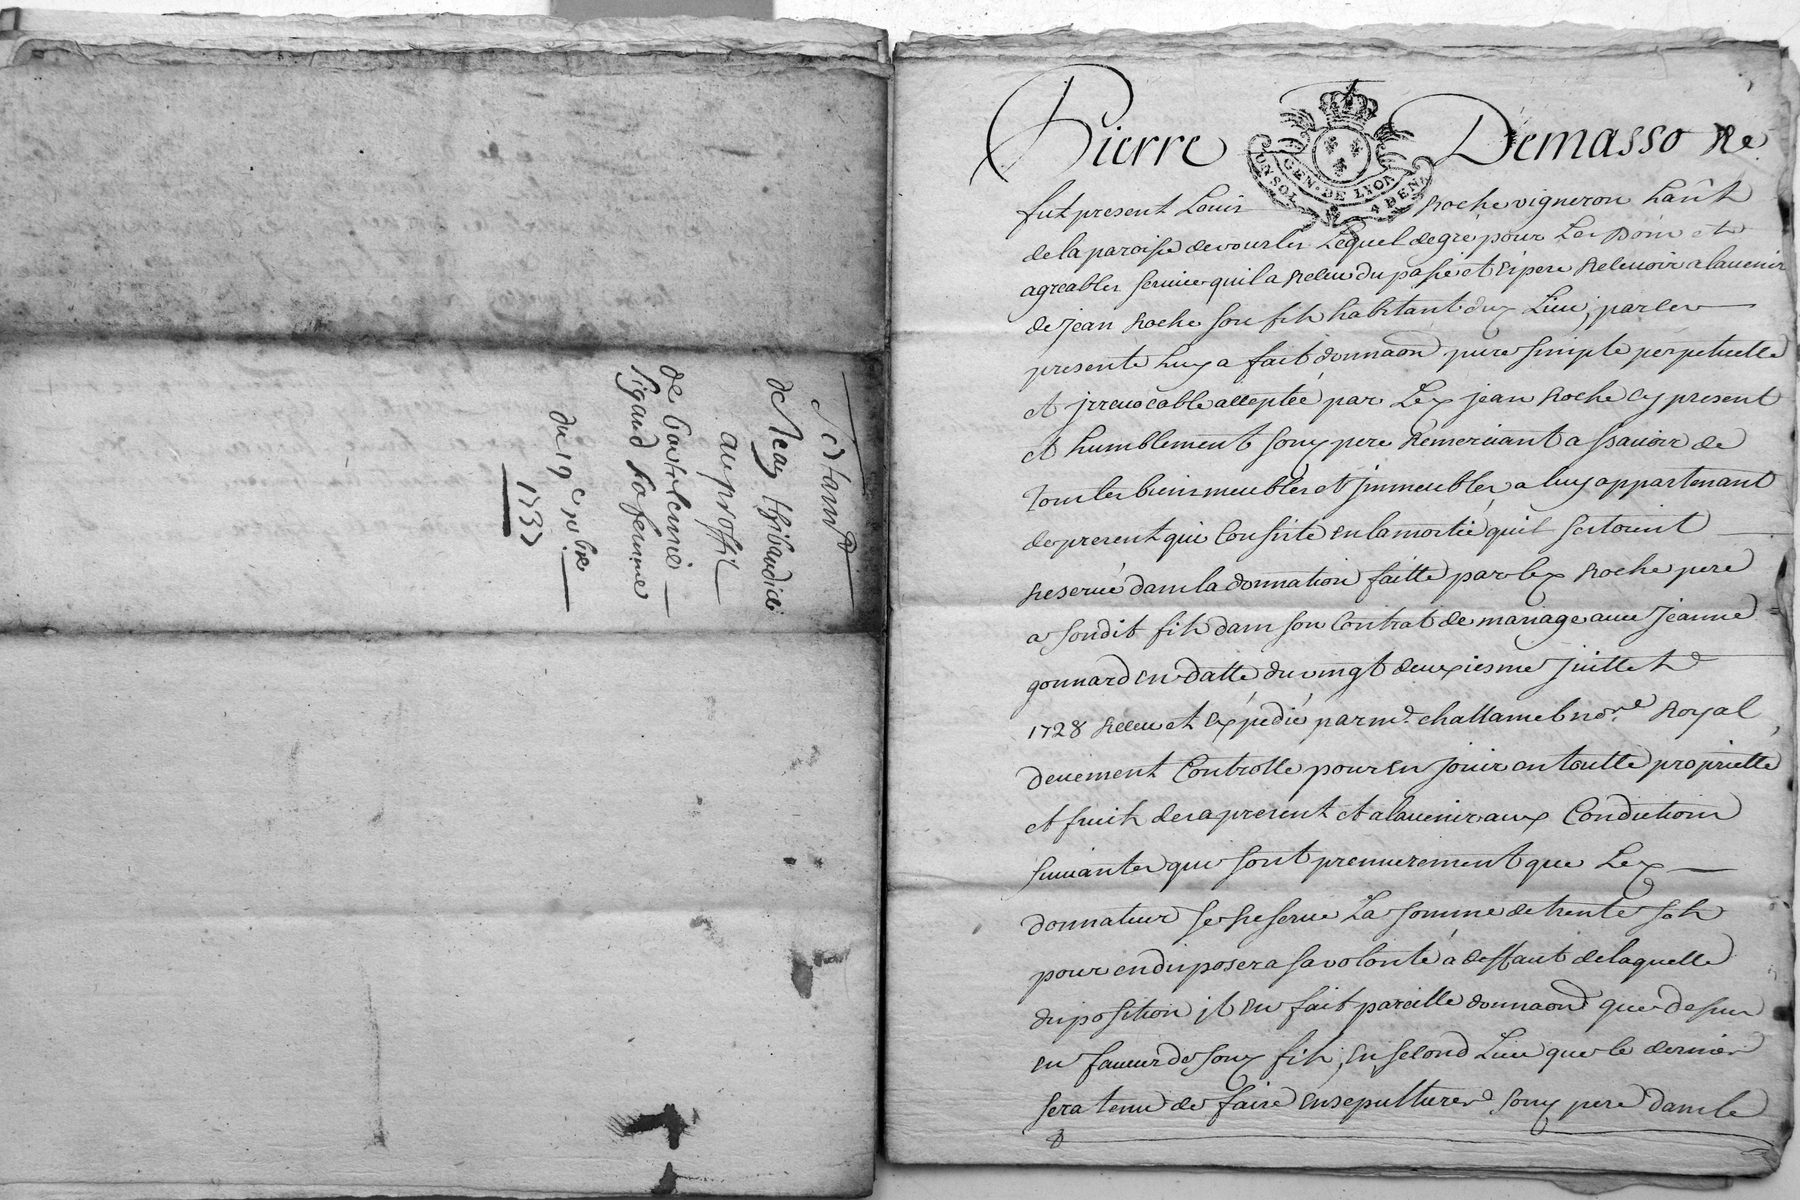 de Jean thibaudide
au proffit
de Barthelemie
sigaud sa femme
du 19e xbre
1737
Pierre Demasso Re
GEN. DE LYON
UN SOL 4 DEN
fut present Louis Roche vigneron habt
de la paroisse de vourles Lequel de gré pour Les bons et
agreables services quil a Receu du passé et espere Recevoir a lavenir
de jean Roche son fils habitant dud Lieu, par les
presente luy a fait donnaon pure simple perpetuelle
et jrrevocable acceptée par Led jean Roche cy present
et humblement sond pere Remerciant a sçavoir de
tous les biens meubles et jmmeubles a luy appartenant
de present qui Consiste en la moitié quil sestoient
Reservé dans la donnation faitte par led Roche pere
a sondit fils dans son Contrat de mariage avec jeanne
gonnard en datte du vingt deuxiesme juillet
1728 Receu et expedié par me challamel nore Royal
deuement Controlle pour en jouir en toutte propriette
et fruits des a present et a lavenir aux Conditions
suivantes qui sont premierement que Led
donnateur se Reserve La somme de trente sols
pour en disposer a sa volonté a deffaut de laquelle
disposition jl en fait pareille donnaon que dessus
en faveur de sond fils, en second Lieu que le dernier
sera tenu de faire ensepulturer sond pere dans le